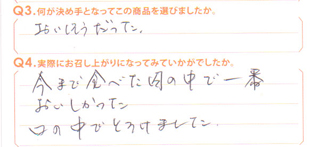 Q3.何が決め手となってこの商品を選びましたか。
おいしそうだった。
Q4.実際にお召し上がりになってみていかがでしたか。
今まで食べた肉の中で一番
おいしかった
口の中でとろけました。